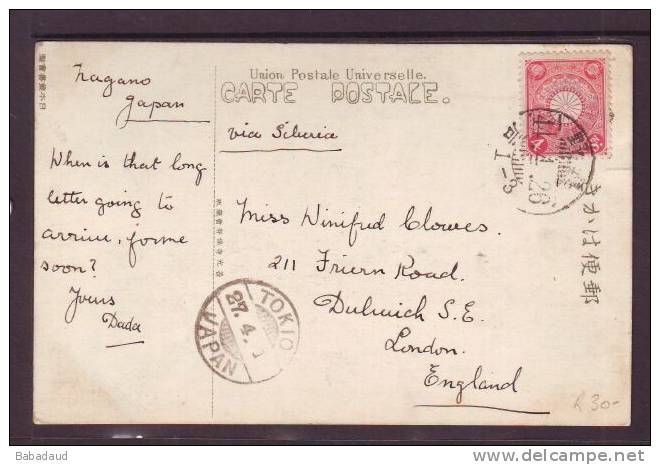 Nagano
Japan
When is that long
letter going to
arrive, for me
soon?
Yours
Dada
Union Postale Universelle.
CARTE POSTALE.
via Siberia
Miss Winifred Clowes.
211 Friern Road.
Dulwich S.E.
London.
England
きかは便郵
TOKIO
27. 4.
JAPAN
26
R 30-
Babadaud
delcampe.net